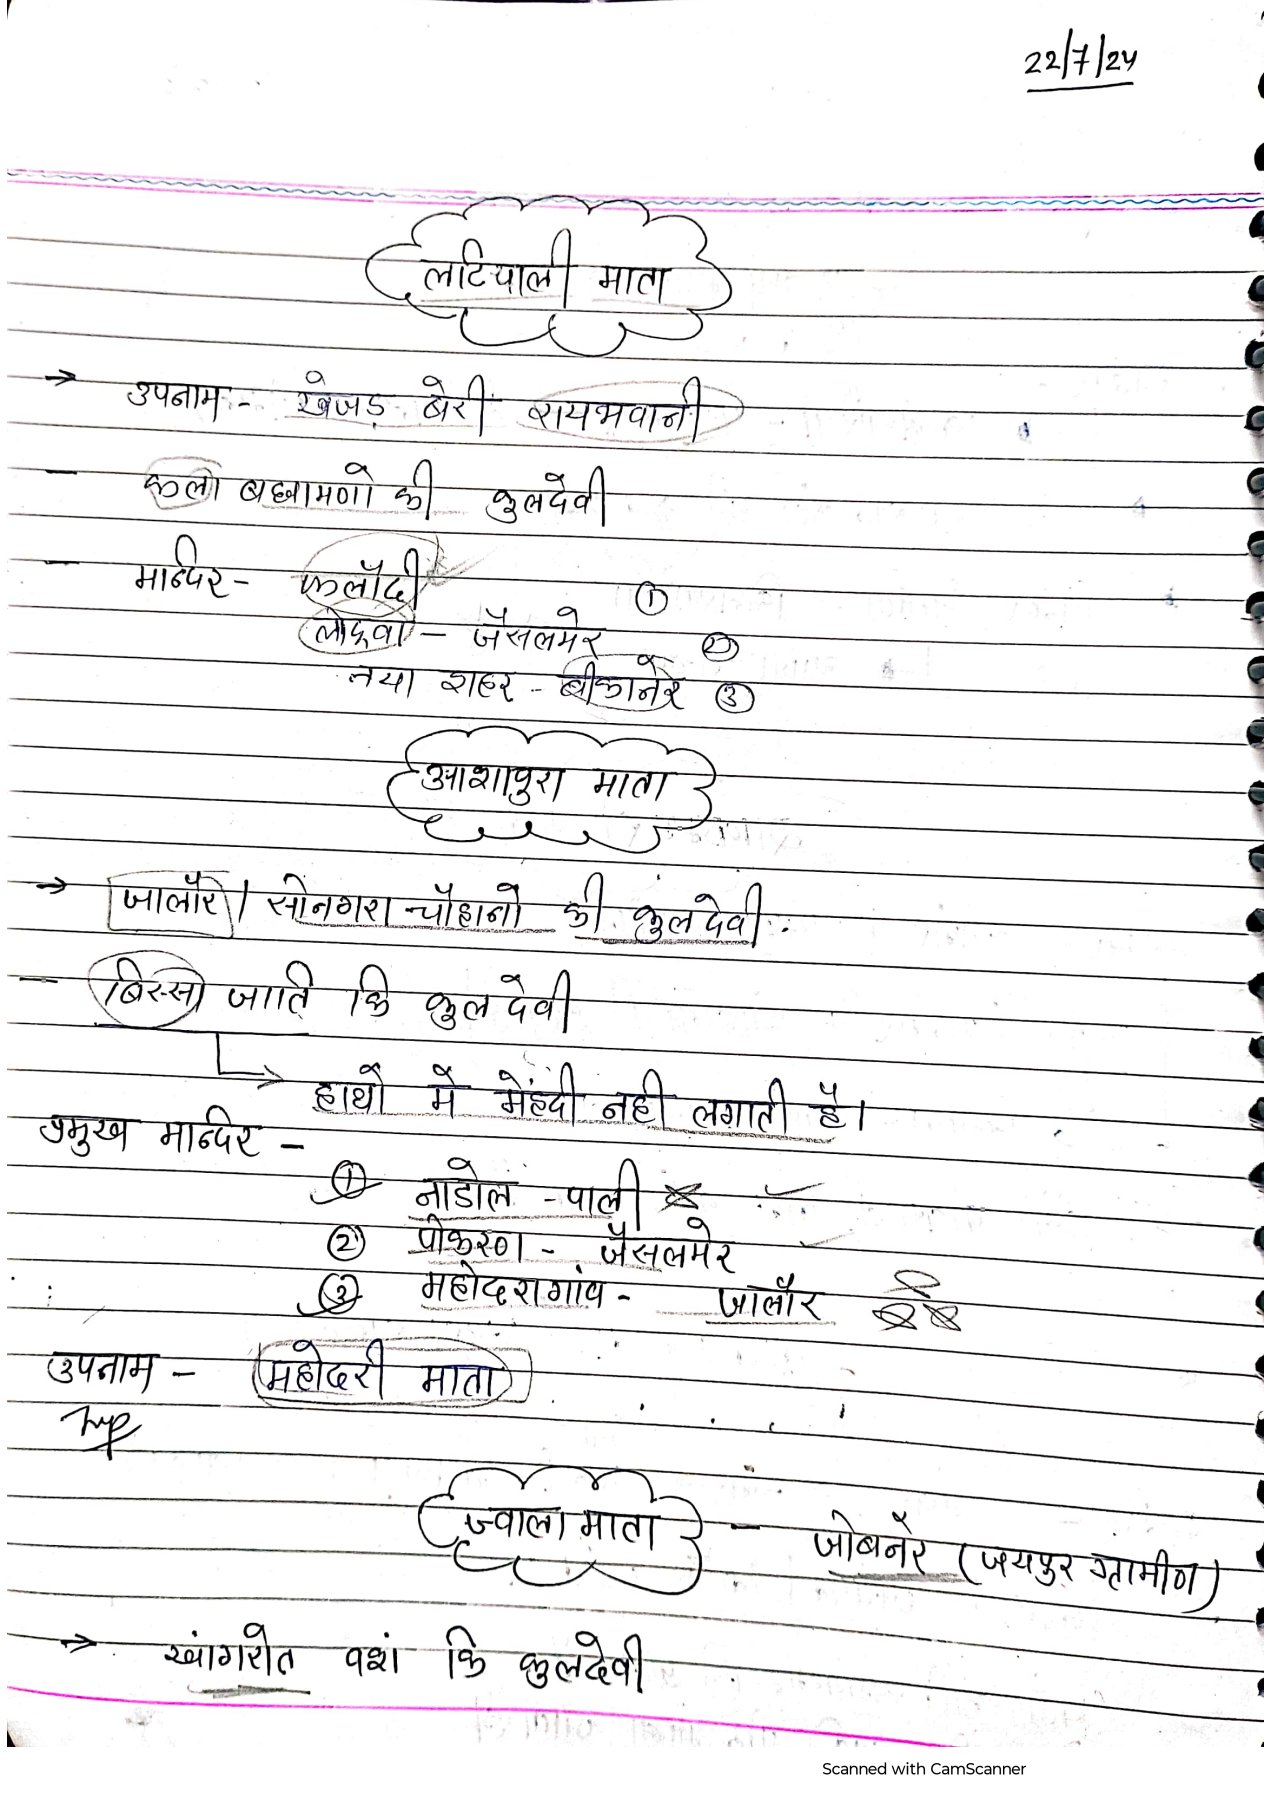 22/7/24
लटियाली माता
→ उपनाम - खेजड़ बेरी रायभवानी
- कला ब्रह्मामणो की कुलदेवी
- मन्दिर - फलौदी ①
लोद्रवा - जैसलमेर ②
नया शहर - बीकानेर ③
आशापुरा माता
→ जालौर / सोनगरा चौहानो की कुलदेवी
- बिस्सा जाति कि कुलदेवी
हाथों मे मेहंदी नही लगाती है।
प्रमुख मन्दिर -
① नाडोल - पाली
② पोकरण - जैसलमेर
③ महोदरागांव - जालौर
उपनाम - महोदरी माता
Imp
ज्वाला माता - जोबनेर (जयपुर ग्रामीण)
→ खांगरोत वशं कि कुलदेवी
Scanned with CamScanner